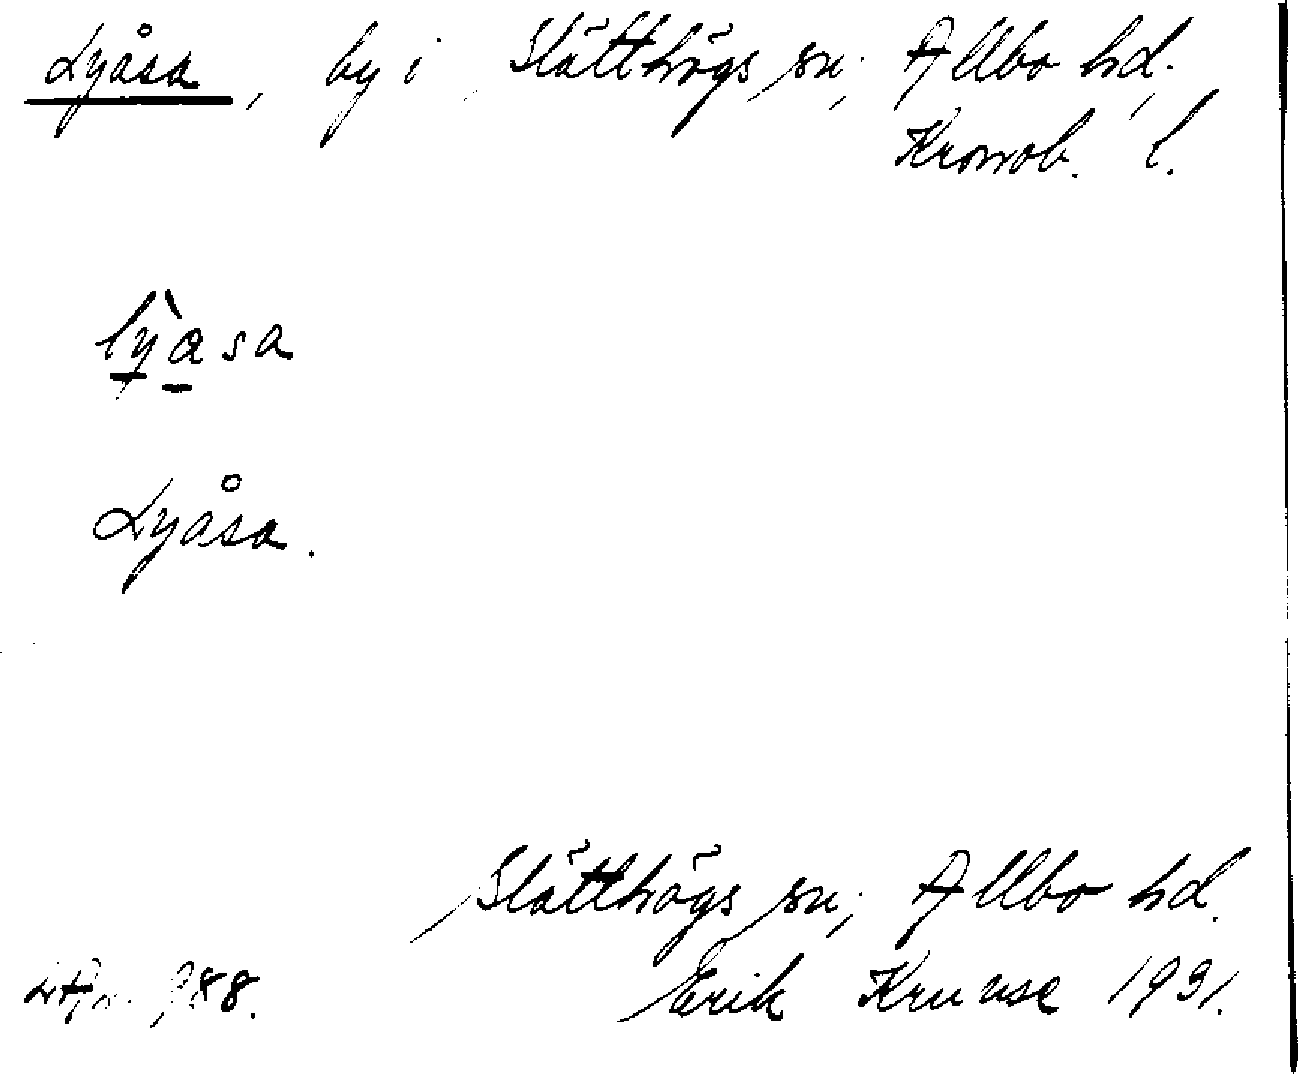 Lyåsa, by i Slätthögs sn; Allbo hd.,
Kronob. l.
lỳasa
Lyåsa.
Slätthögs sn; Allbo hd.
988. Erik Kruuse 1931.